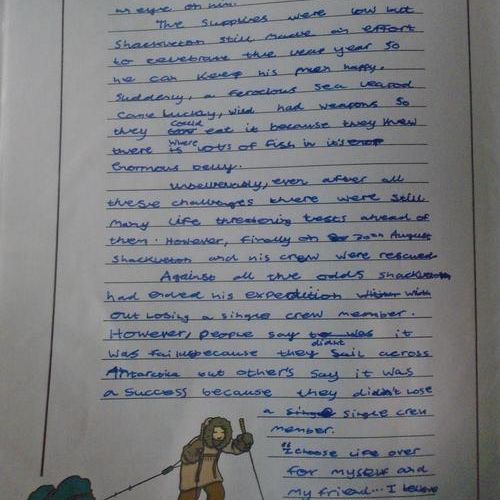 an eye on him.
The supplies were low but
Shackleton still made an effort
to celebrate the year year so
he can keep his men happy.
Suddenly, a ferocious sea leapord
came luckily, wild had weapons so
they could eat it because they knew
there where lots of fish in it's
enormous belly.
Unbelievably, even after all
these challenges there were still
many life threatening tests ahead of
them. However, finally on 30th August
Shackleton and his crew were rescued
Against all the odds Shackleton
had ended his expedition with
out losing a single crew member.
However, people say it
was fail because they didnt sail across
Antarctica but other's say it was
a success because they didn't lose
a single crew
member.
"I choose life over
for myself and
my friend... I believe